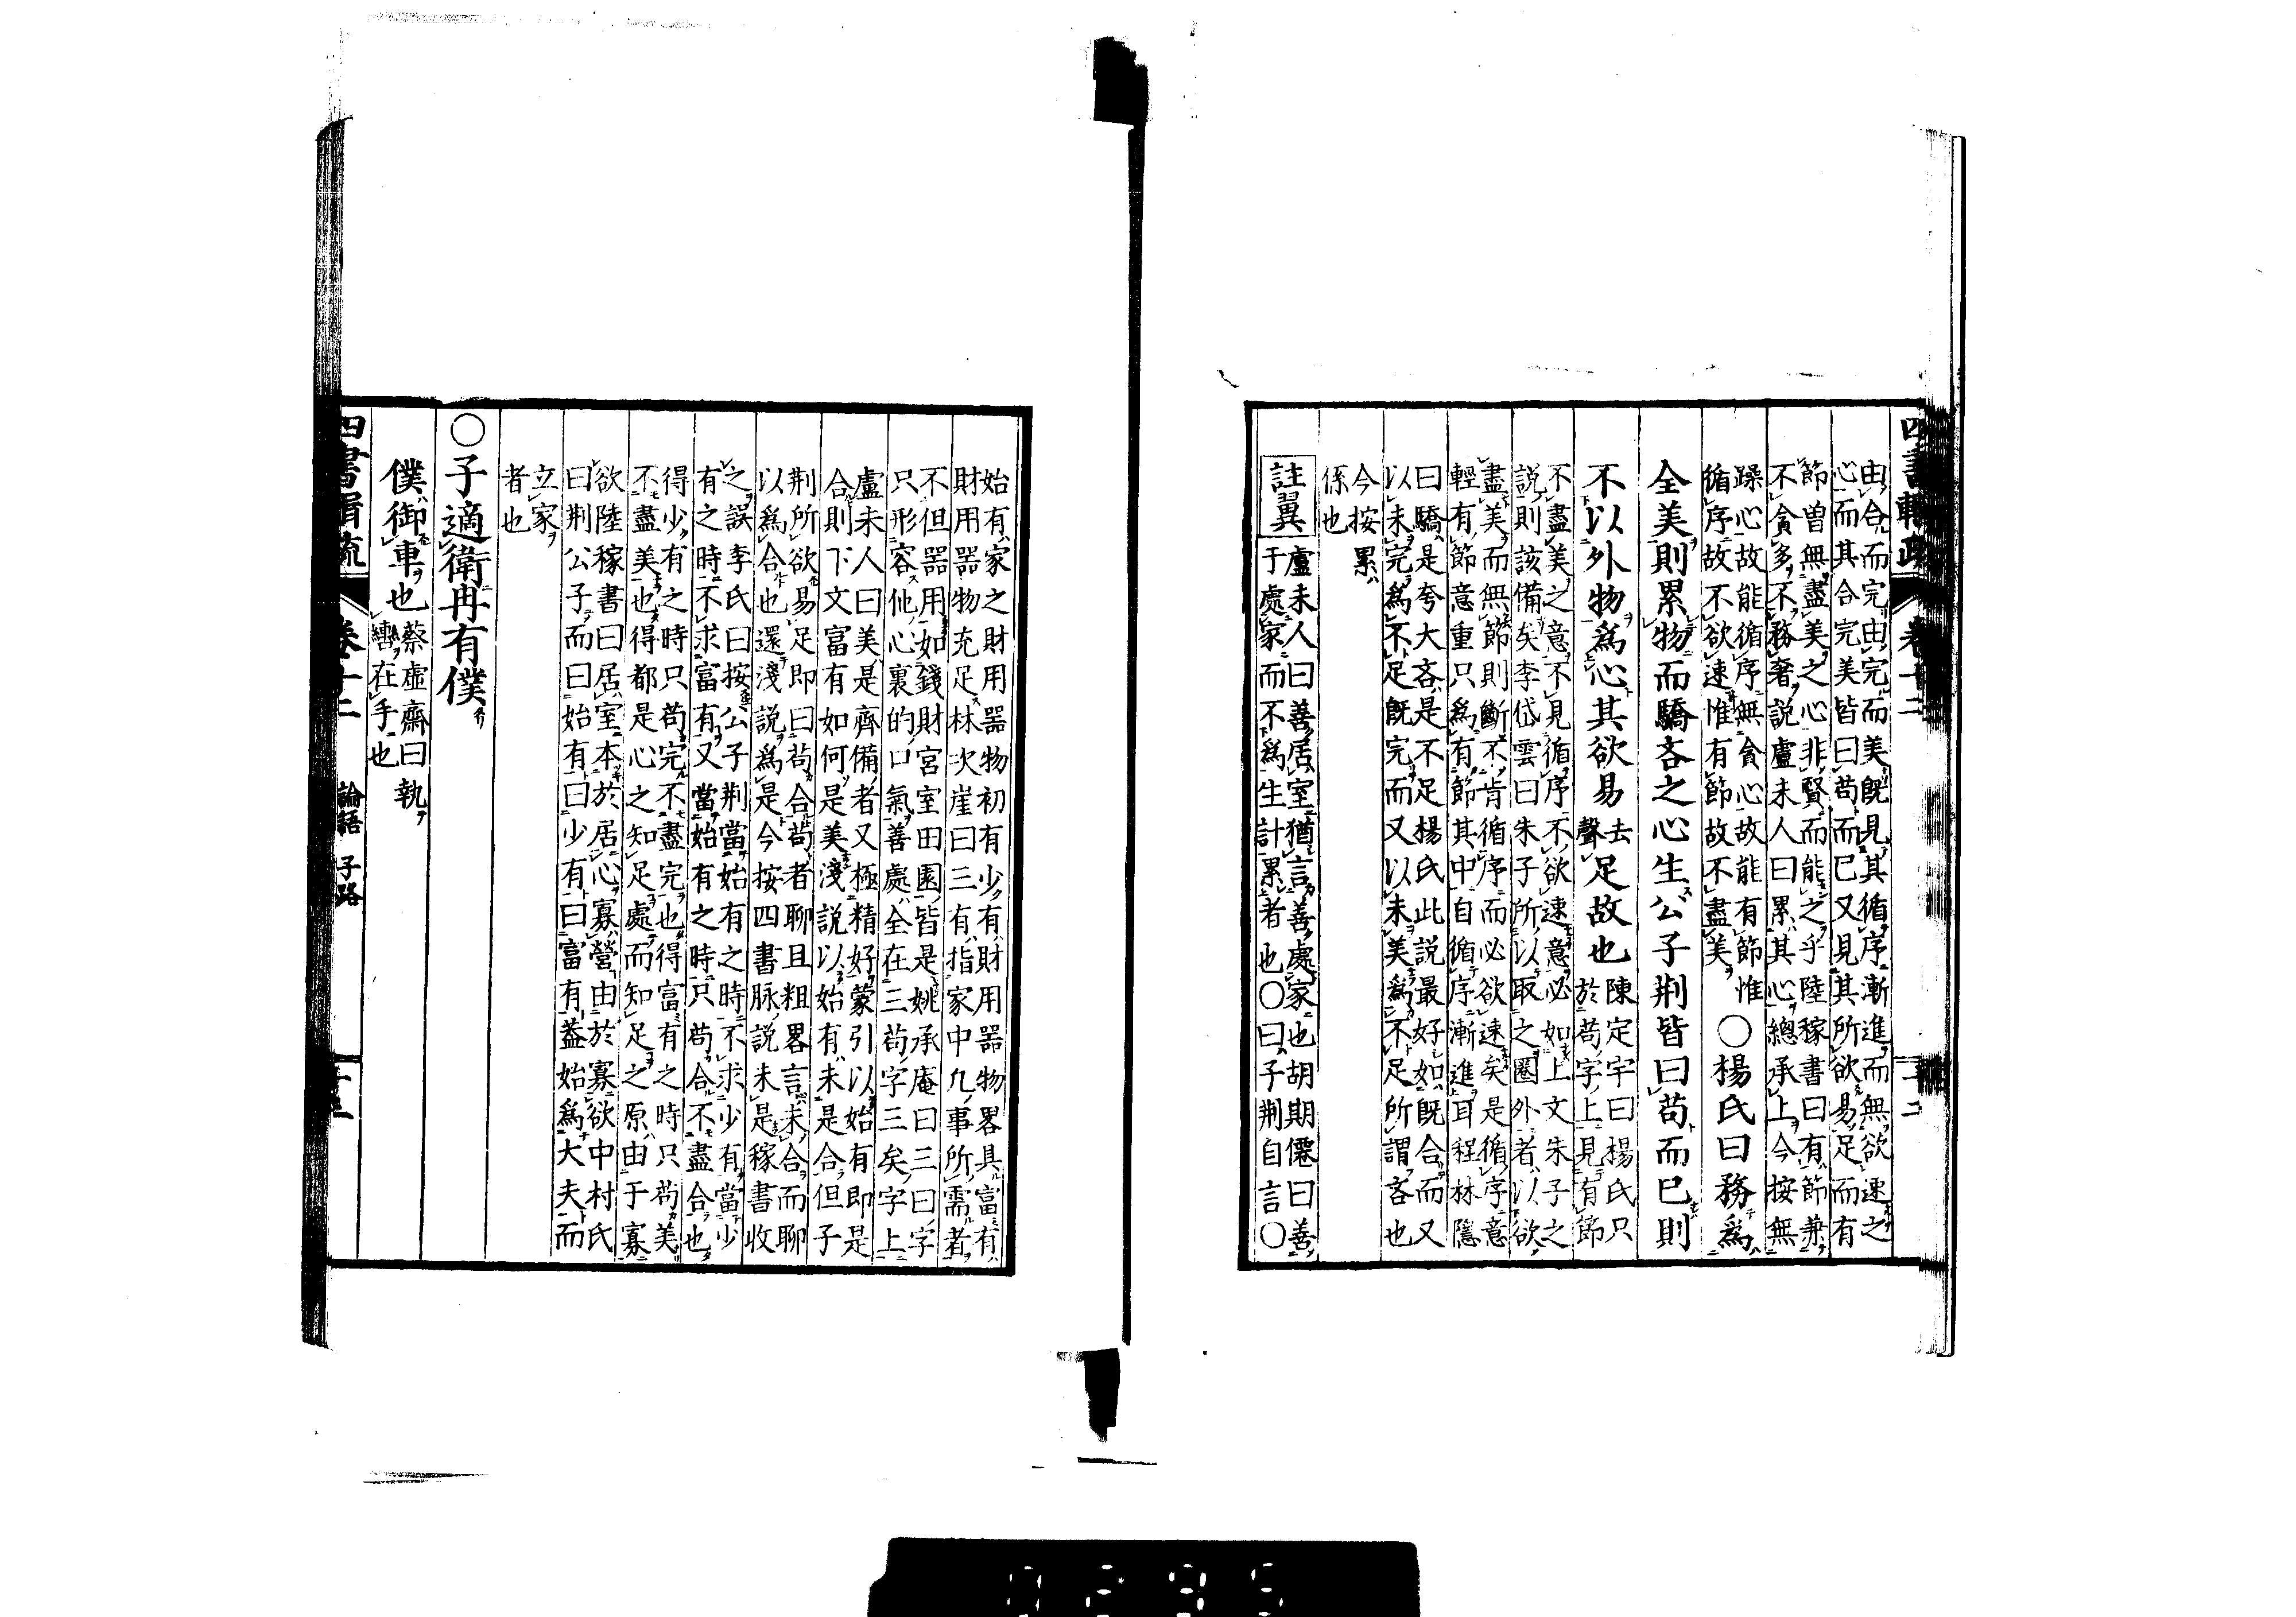 四書輯疏 卷十二
由合而完由完而美既見其循序漸進而無欲速之
心而其合完美皆曰苟而已又見其所欲易足而有
節曾無盡美之心非賢而能之乎陸稼書曰有節兼
不貪多不務奢說盧未人曰累其心總承上今按無
躁心故能循序無貪心故能有節惟
循序故不欲速惟有節故不盡美
○楊氏曰務爲
全美則累物而驕吝之心生公子荆皆曰苟而已則
不以外物爲心其欲易去聲足故也
陳定宇曰楊氏只
於苟字上見有節
不盡美之意不見循序不欲速意必如上文朱子之
說則該備矣李岱雲曰朱子所以取之圈外者以欲
盡美而無節則斷不肯循序而必欲速矣是循序意
輕有節意重只爲有節其中自循序漸進耳程林隱
曰驕是夸大吝是不足楊氏此說最好如既合而又
以未完爲不足既完而又以未美爲不足所謂吝也
今按累
係也
註翼
盧未人曰善居室猶言善處家也胡期僊曰善
于處家而不爲生計累者也○曰子荆自言○
始有家之財用器物初有少有財用器物畧具富有
財用器物充足林次崖曰三有指家中凡事所需者
不但器用如錢財宮室田園皆是姚承庵曰三曰字
只形容他心裏的口氣善處全在三苟字三矣字上
盧未人曰美是齊備者又極精好蒙引以始有即是
合則下文富有如何是美淺說以始有未是合但子
荆所欲易足即曰苟合苟者聊且粗畧言未合而聊
以爲合也還淺說爲是今按四書脉說未是稼書收
之誤李氏曰按公子荆當始有之時不求少有當少
有之時不求富有又當始有之時只苟合不盡合也
得少有之時只苟完不盡完也得富有之時只苟美
不盡美也得都是心之知足處而知足之原由于寡
欲陸稼書曰居室本於居心寡營由於寡欲中村氏
曰荆公子而曰始有曰少有曰富有葢始爲大夫而
立家
者也
○子適衛冉有僕
僕御車也
蔡虛齋曰執
轡在手也
四書輯疏 卷十二 論語 子路